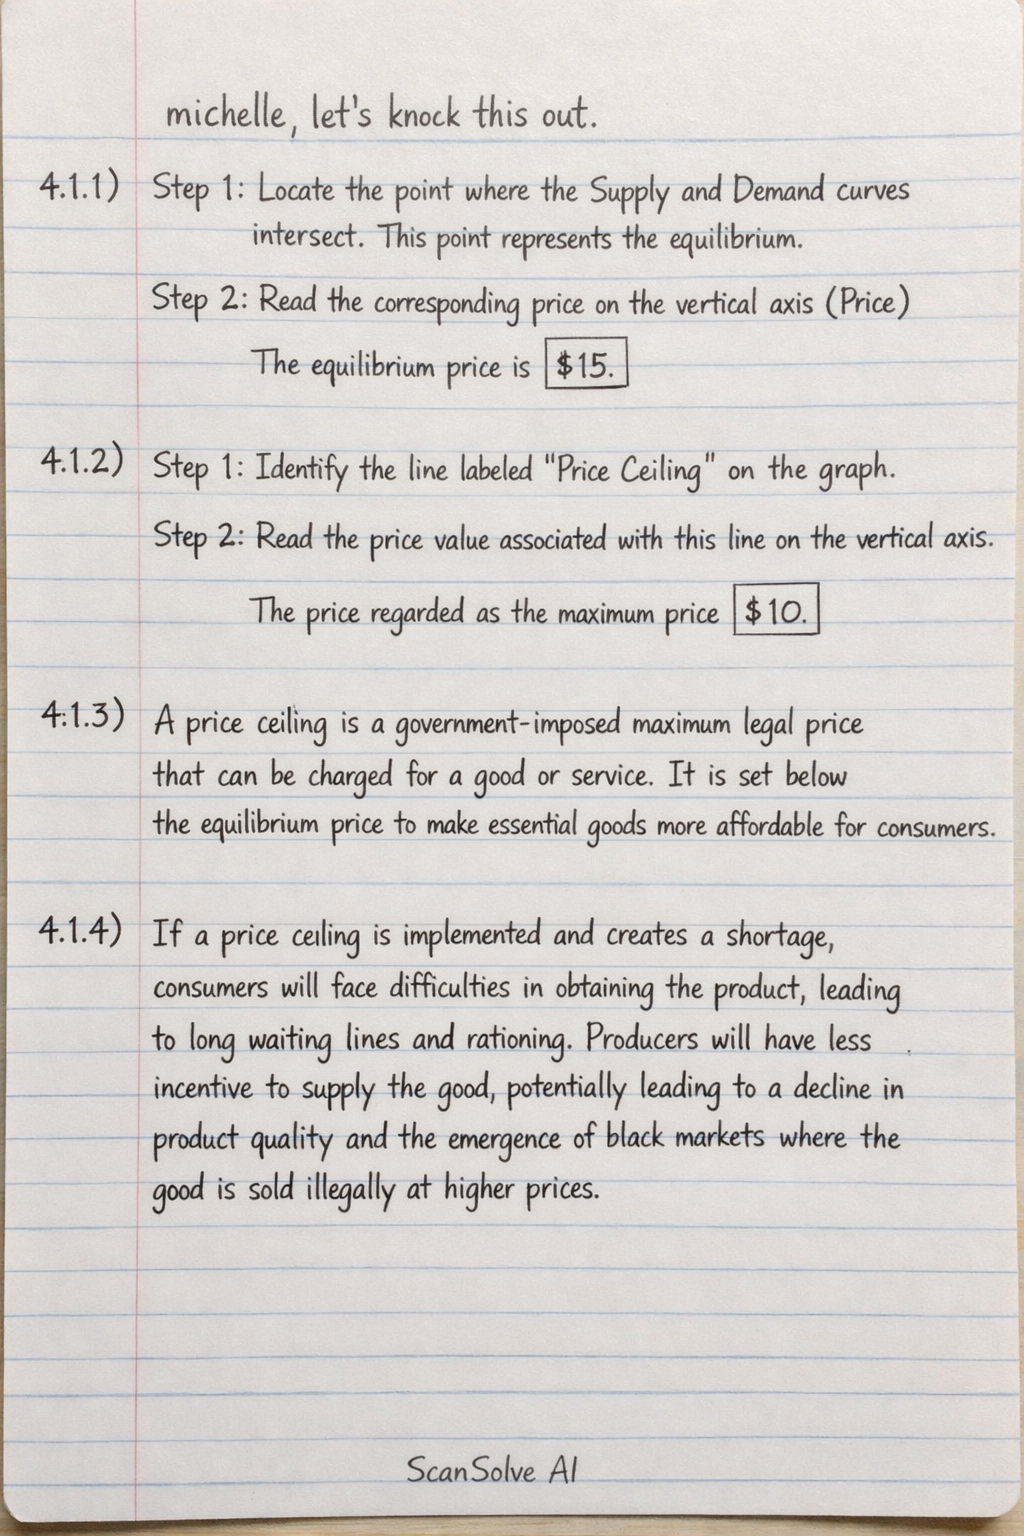 michelle, let's knock this out.
4.1.1) Step 1: Locate the point where the Supply and Demand curves
intersect. This point represents the equilibrium.
Step 2: Read the corresponding price on the vertical axis (Price)
The equilibrium price is $15.
4.1.2) Step 1: Identify the line labeled "Price Ceiling" on the graph.
Step 2: Read the price value associated with this line on the vertical axis.
The price regarded as the maximum price $10.
4.1.3) A price ceiling is a government-imposed maximum legal price
that can be charged for a good or service. It is set below
the equilibrium price to make essential goods more affordable for consumers.
4.1.4) If a price ceiling is implemented and creates a shortage,
consumers will face difficulties in obtaining the product, leading
to long waiting lines and rationing. Producers will have less
incentive to supply the good, potentially leading to a decline in
product quality and the emergence of black markets where the
good is sold illegally at higher prices.
ScanSolve AI